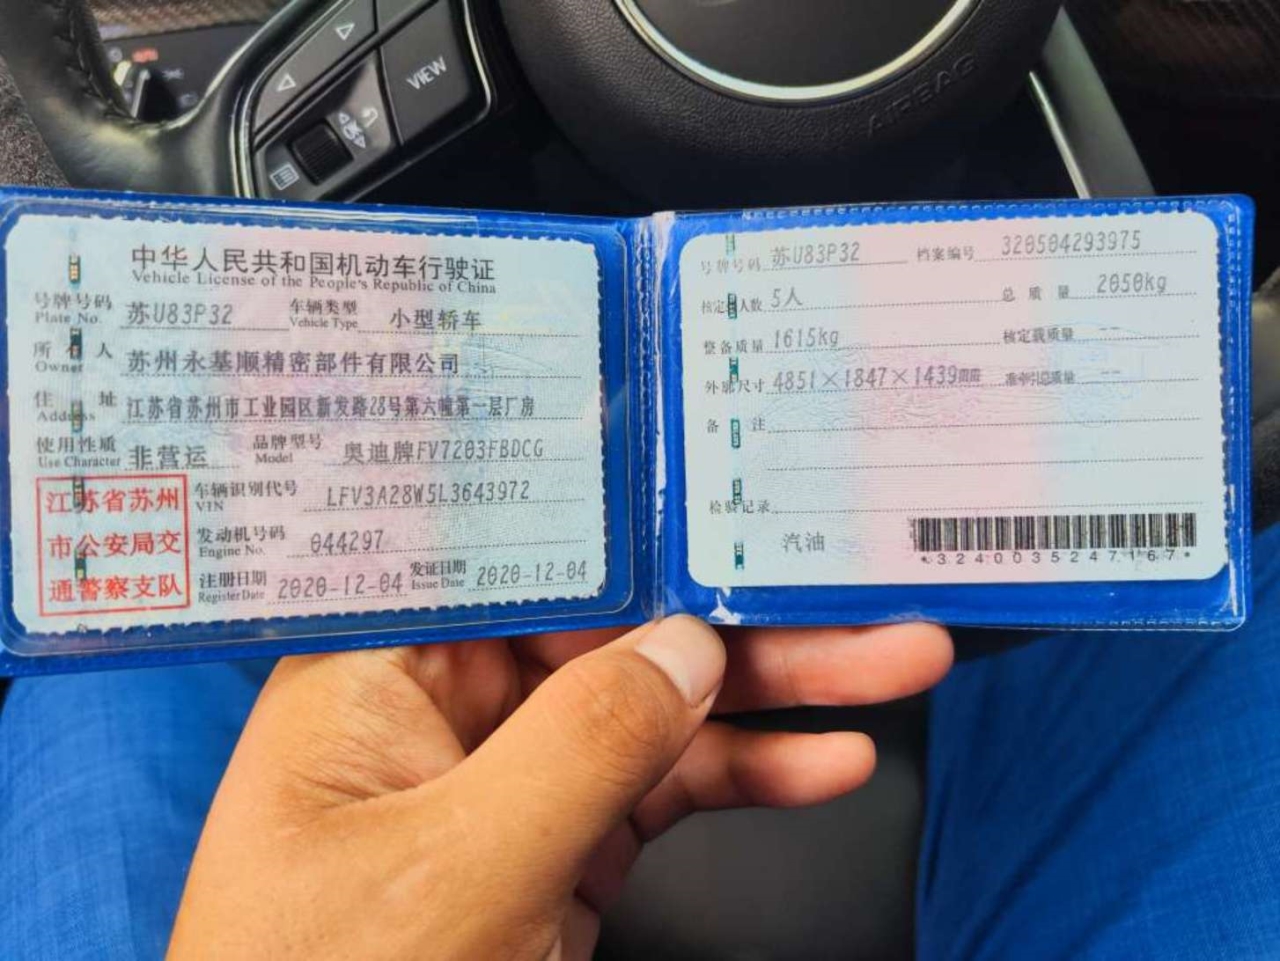 VIEW
OK
AIRBAG
中华人民共和国机动车行驶证
Vehicle License of the People's Republic of China
号牌号码 苏U83P32 车辆类型 小型轿车
Plate No. Vehicle Type
所有人 苏州永基顺精密部件有限公司
Owner
住址 江苏省苏州市工业园区新发路28号第六幢第一层厂房
Address
使用性质 非营运 品牌型号 奥迪牌FV7203FBDCG
Use Character Model
江苏省苏州
市公安局交
通警察支队
车辆识别代号 LFV3A28W5L3643972
VIN
发动机号码 044297
Engine No.
注册日期 2020-12-04 发证日期 2020-12-04
Register Date Issue Date
号牌号码 苏U83P32 档案编号 320504293975
核定载人数 5人 总质量 2050kg
整备质量 1615kg 核定载质量 --
外廓尺寸 4851×1847×1439mm 准牵引总质量 --
备注
检验记录
汽油
*3240035247167*